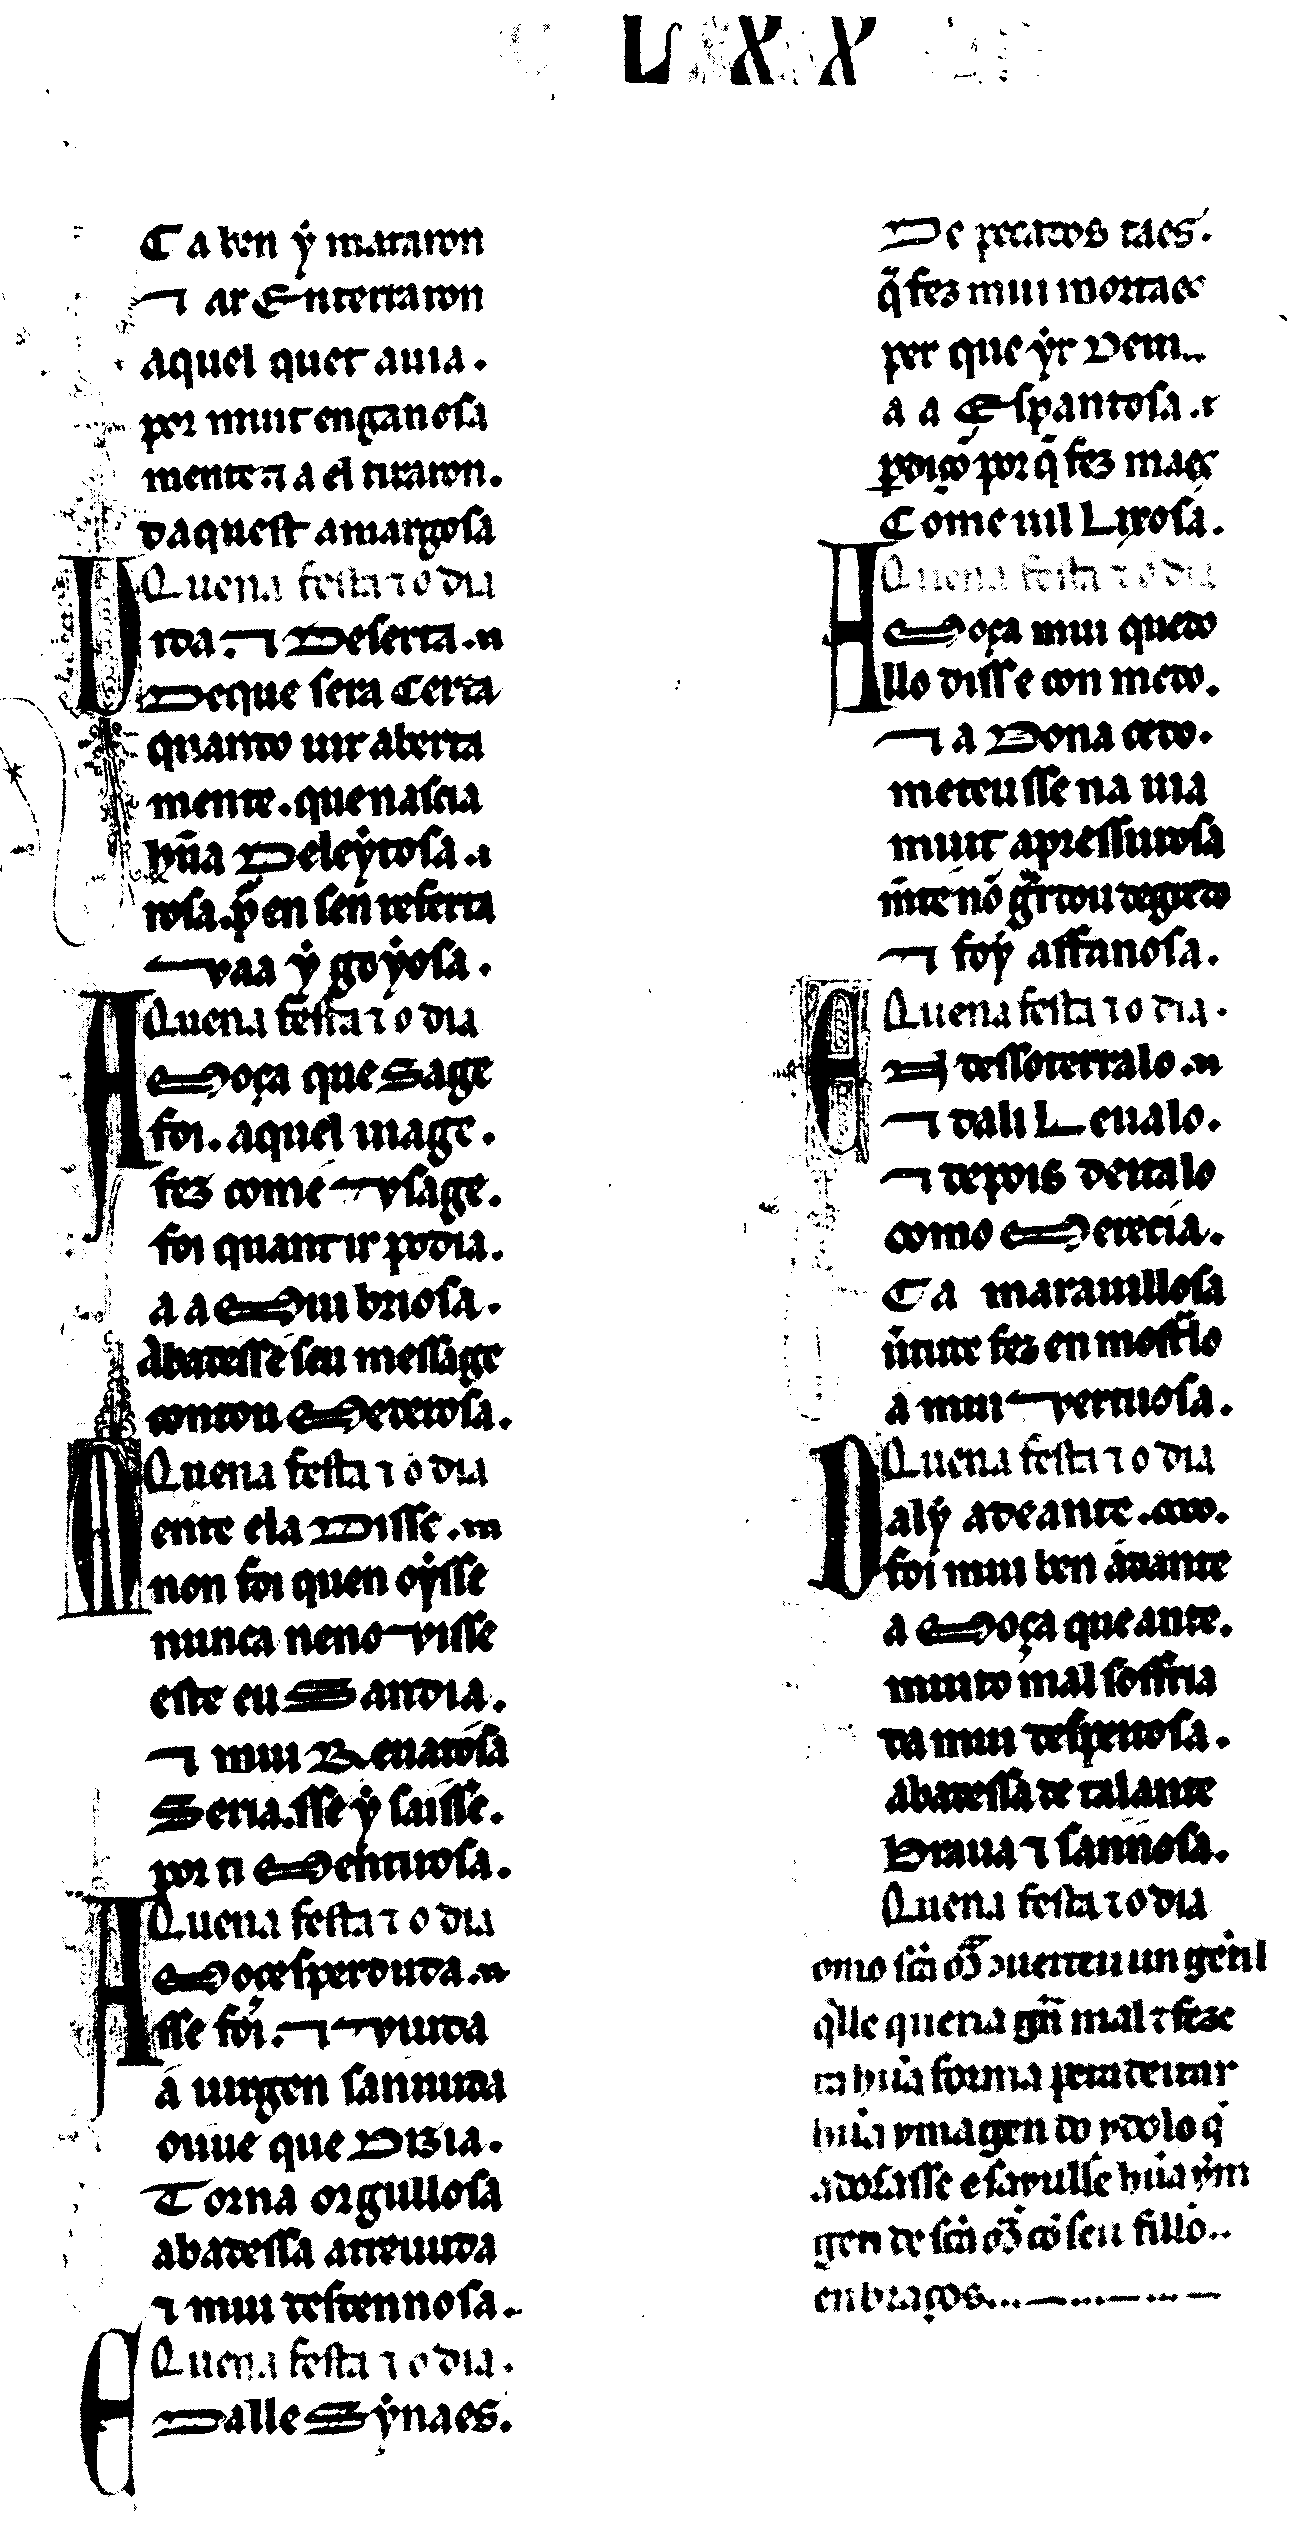 LXX
Ca ben ẏ mataron
⁊ ar Enterraron
aquel quer auia.
por muit enganosa
mente ⁊ a el tiraron.
daquest amargosa
Quena festa ⁊ o dia
rda. ⁊ Deserta.
Deque sera Certa
quanto uir aberta
mente. que nascia
hũa Deleẏtosa.
rosa. en sen referta
vaa ẏ goẏosa.
Quena festa ⁊ o dia
A Moça que Sage
foi. aquel mage.
fez come vsage.
foi quant ir podia.
a a Mui briosa.
abatesse seu message
contou Meterosa.
Quena festa ⁊ o dia
Mente ela Disse.
non foi quen oẏsse
nunca neno visse
este eu Sandia.
⁊ mui Reuatosa
Seria. sse ẏ saisse.
por ti Mentirosa.
Quena festa ⁊ o dia
A Moçe sperduda.
sse foi. ⁊ viuda
a uirgen sannuda
ouue que Dizia.
Torna orgullosa
abadessa atreuuda
⁊ mui desdennosa.
Quena festa ⁊ o dia.
E Dalle Sẏnaes.
De pecados taes.
q̃ fez mui mortaes
per que ẏr Deui..
a a Espantosa.
perdiçõ por q̃ fez maes
Come uil Lixosa.
Quena festa ⁊ o dia
A Moça mui quedo
llo disse con medo.
⁊ a Dona cedo.
meteusse na uia
muit apressurosa
mẽte nõ gͥtou degredo
⁊ foẏ affanosa.
Quena festa ⁊ o dia.
E dessoterralo.
⁊ dali Leualo.
⁊ depois deitalo
como Merecia.
Ca marauillosa
ũtute fez en mostͣlo
a mui vertuosa.
Quena festa ⁊ o dia
Dalẏ adeante.
foi mui ben andante
a Moça que ante.
muito mal soffria
da mui despeitosa.
abadessa de talante
Braua ⁊ sannosa.
Quena festa ⁊ o dia
omo sc̃a Mͣ uerteu un gentil
qͥlle queria gͣn mal ⁊ feze
ta hũa forma pera deitar
hũa ymagen do ydolo q̃
adorasse e sayulle hũa ẏm
gen de sc̃a Mͣ cõ seu fillo..
en braços...—...—...—